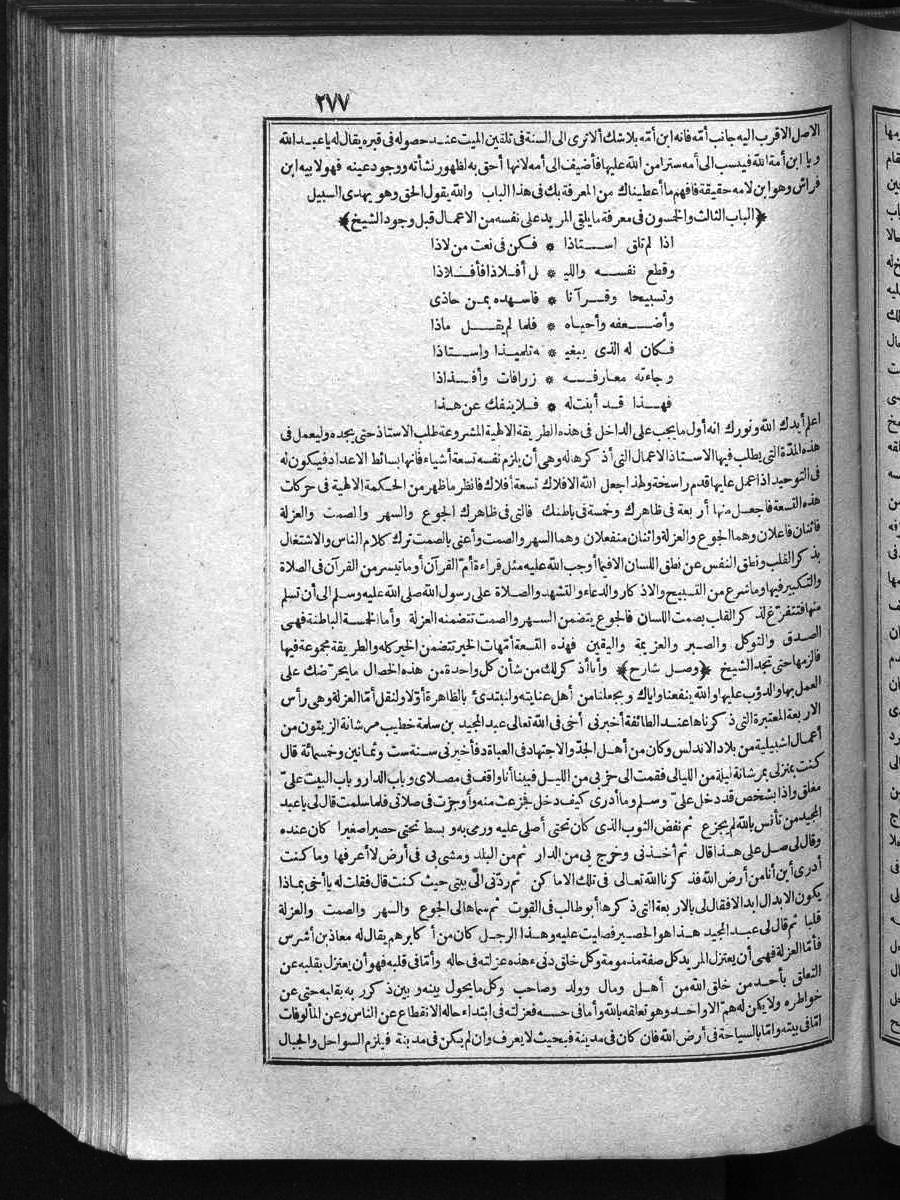 ٢٧٧
الاصل الاقرب اليه جانب أمّه فانه ابن أمّه بلاشك ألاترى الى السنة فى تلقين الميت عند حصوله فى قبره يقال له ياعبد الله
ويا ابن أمة الله فينسب الى أمه سترا من الله عليها فأضيف الى أمه لانها أحق به لظهور نشأته ووجود عينه فهولابيه ابن
فراش وهوابن لامه حقيقة فافهم ماأعطيناك من المعرفة بك فى هذا الباب والله يقول الحق وهو يهدى السبيل
﴿الباب الثالث والخمسون فى معرفة مايلقى المريد على نفسه من الاعمال قبل وجود الشيخ﴾
اذا لم تلق استاذا * فكن فى نعت من لاذا
وقطع نفسه والليـ * ـل أفلاذا فأفلاذا
وتسبيحا وقرآنا * فاسهده بمن حاذى
وأضعفه وأحياه * فلما لم يقل ماذا
فكان له الذى يبغيـ * ـه تلميذا واستاذا
وجاءته معارفه * زرافات وأفذاذا
فهذا قد أبنت له * فلاينفك عن هذا
اعلم أيدك الله ونورك انه أول مايجب على الداخل فى هذه الطريقة الالهية المشروعة طلب الاستاذ حتى يجده وليعمل فى
هذه المدّة التى يطلب فيها الاستاذ الاعمال التى أذكرها له وهى أن يلزم نفسه تسعة أشياء فانها بسائط الاعداد فيكون له
فى التوحيد اذا عمل عليها قدم راسخة ولهذا جعل الله الافلاك تسعة أفلاك فانظر ماظهر من الحكمة الالهية فى حركات
هذه التسعة فاجعل منها أربعة فى ظاهرك وخمسة فى باطنك فالتى فى ظاهرك الجوع والسهر والصمت والعزلة
فاثنان فاعلان وهما الجوع والعزلة واثنان منفعلان وهما السهر والصمت وأعنى بالصمت ترك كلام الناس والاشتغال
بذكر القلب ونطق النفس عن نطق اللسان الافيما أوجب الله عليه مثل قراءة أمّ القرآن أوماتيسر من القرآن فى الصلاة
والتكبير فيها وماشرع من التسبيح والاذكار والدعاء والتشهد والصلاة على رسول الله صلى الله عليه وسلم الى أن تسلم
منها فتتفرّغ لذكر القلب بصمت اللسان فالجوع يتضمن السهر والصمت تتضمنه العزلة وأما الخمسة الباطنة فهى
الصدق والتوكل والصبر والعزيمة واليقين فهذه التسعة أمّهات الخير تتضمن الخير كله والطريقة مجموعة فيها
فالزمها حتى تجد الشيخ ﴿وصل شارح﴾ وأنا أذكر لك من شأن كل واحدة من هذه الخصال مايحرّضك على
العمل بها والدؤب عليها والله ينفعنا واياك ويجعلنا من أهل عنايته ولنبتدئ بالظاهرة أوّلا ولنقل أمّا العزلة وهى رأس
الاربعة المعتبرة التى ذكرناها عند الطائفة أخبرنى أخى فى الله تعالى عبد المجيد بن سلمة خطيب مرشانة الزيتون من
أعمال اشبيلية من بلاد الاندلس وكان من أهل الجدّ والاجتهاد فى العبادة فأخبرنى سنة ست وثمانين وخمسمائة قال
كنت بمنزلى بمرشانة ليلة من الليالى فقمت الى حزبى من الليل فبينا أنا واقف فى مصلاى وباب الدار وباب البيت علىّ
مغلق واذا بشخص قد دخل علىّ وسلم وماأدرى كيف دخل فجزعت منه وأوجزت فى صلاتى فلما سلمت قال لى ياعبد
المجيد من تأنس بالله لم يجزع ثم نفض الثوب الذى كان تحتى أصلى عليه ورمى به وبسط تحتى حصيرا صغيرا كان عنده
وقال لى صل على هذا قال ثم أخذنى وخرج بى من الدار ثم من البلد ومشى بى فى أرض لاأعرفها وماكنت
أدرى أين أنا من أرض الله فذكرنا الله تعالى فى تلك الاماكن ثم ردّنى الى بيتى حيث كنت قال فقلت له ياأخى بماذا
يكون الابدال ابدالا فقال لى بالاربعة التى ذكرها أبوطالب فى القوت ثم سماها لى الجوع والسهر والصمت والعزلة
قلبا ثم قال لى عبد المجيد هذا هو الحصير فصليت عليه وهذا الرجل كان من أكابرهم يقال له معاذ بن أشرس
فأمّا العزلة فهى أن يعتزل المريد كل صفة مذمومة وكل خلق دنىء هذه عزلته فى حاله وأمّا فى قلبه فهو أن يعتزل بقلبه عن
التعلق بأحد من خلق الله من أهل ومال وولد وصاحب وكل مايحول بينه وبين ذكر ربه بقلبه حتى عن
خواطره ولايكن له همّ الاواحد وهو تعلقه بالله وأما فى حسه فعزلته فى ابتداء حاله الانقطاع عن الناس وعن المألوفات
امّا فى بيته وامّا بالسياحة فى أرض الله فان كان فى مدينة فبحيث لايعرف وان لم يكن فى مدينة فيلزم السواحل والجبال